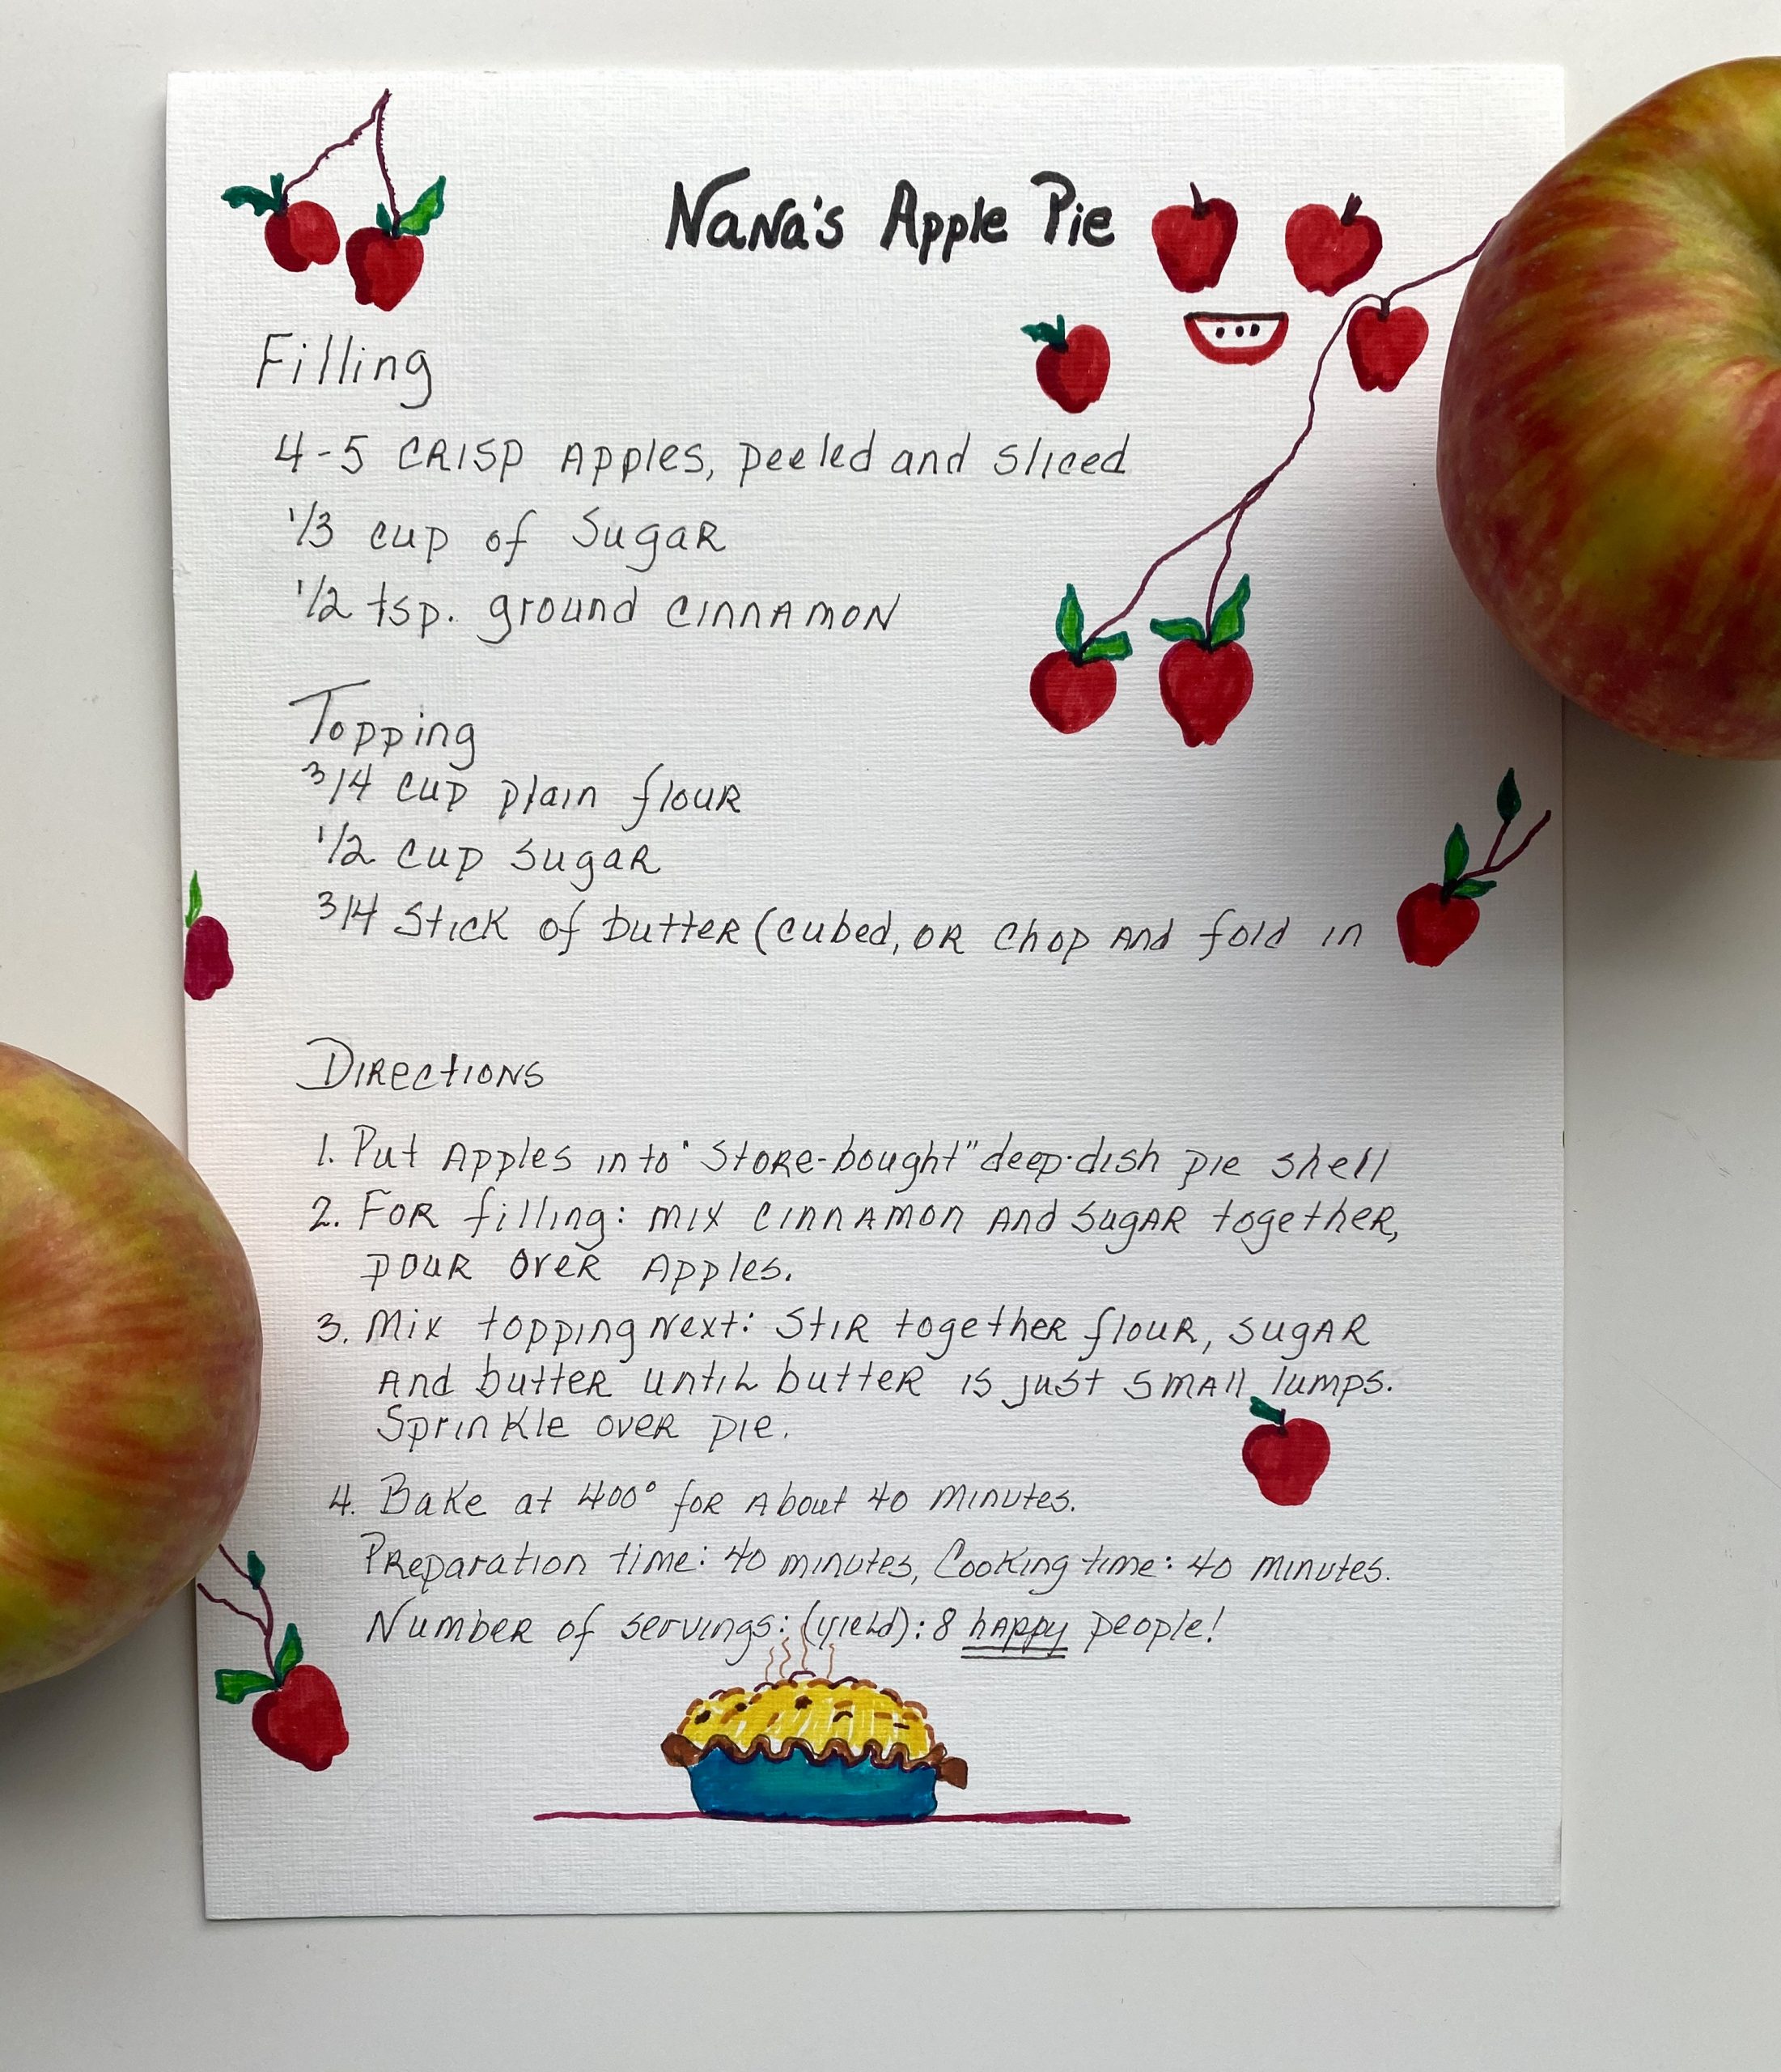 Nana's Apple Pie
Filling
4-5 crisp Apples, peeled and sliced
1/3 cup of Sugar
1/2 tsp. ground cinnamon
Topping
3/4 cup plain flour
1/2 cup sugar
3/4 Stick of butter (cubed, or chop and fold in
Directions
1. Put Apples into "Store-bought" deep-dish pie shell
2. For filling: mix cinnamon and sugar together,
pour over Apples.
3. Mix topping next: Stir together flour, sugar
and butter until butter is just small lumps.
Sprinkle over pie.
4. Bake at 400° for About 40 minutes.
Preparation time: 40 minutes, Cooking time: 40 minutes.
Number of servings: (yield): 8 happy people!